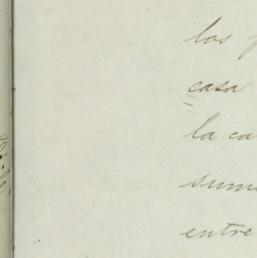 los
casa
la ca
sum
entre